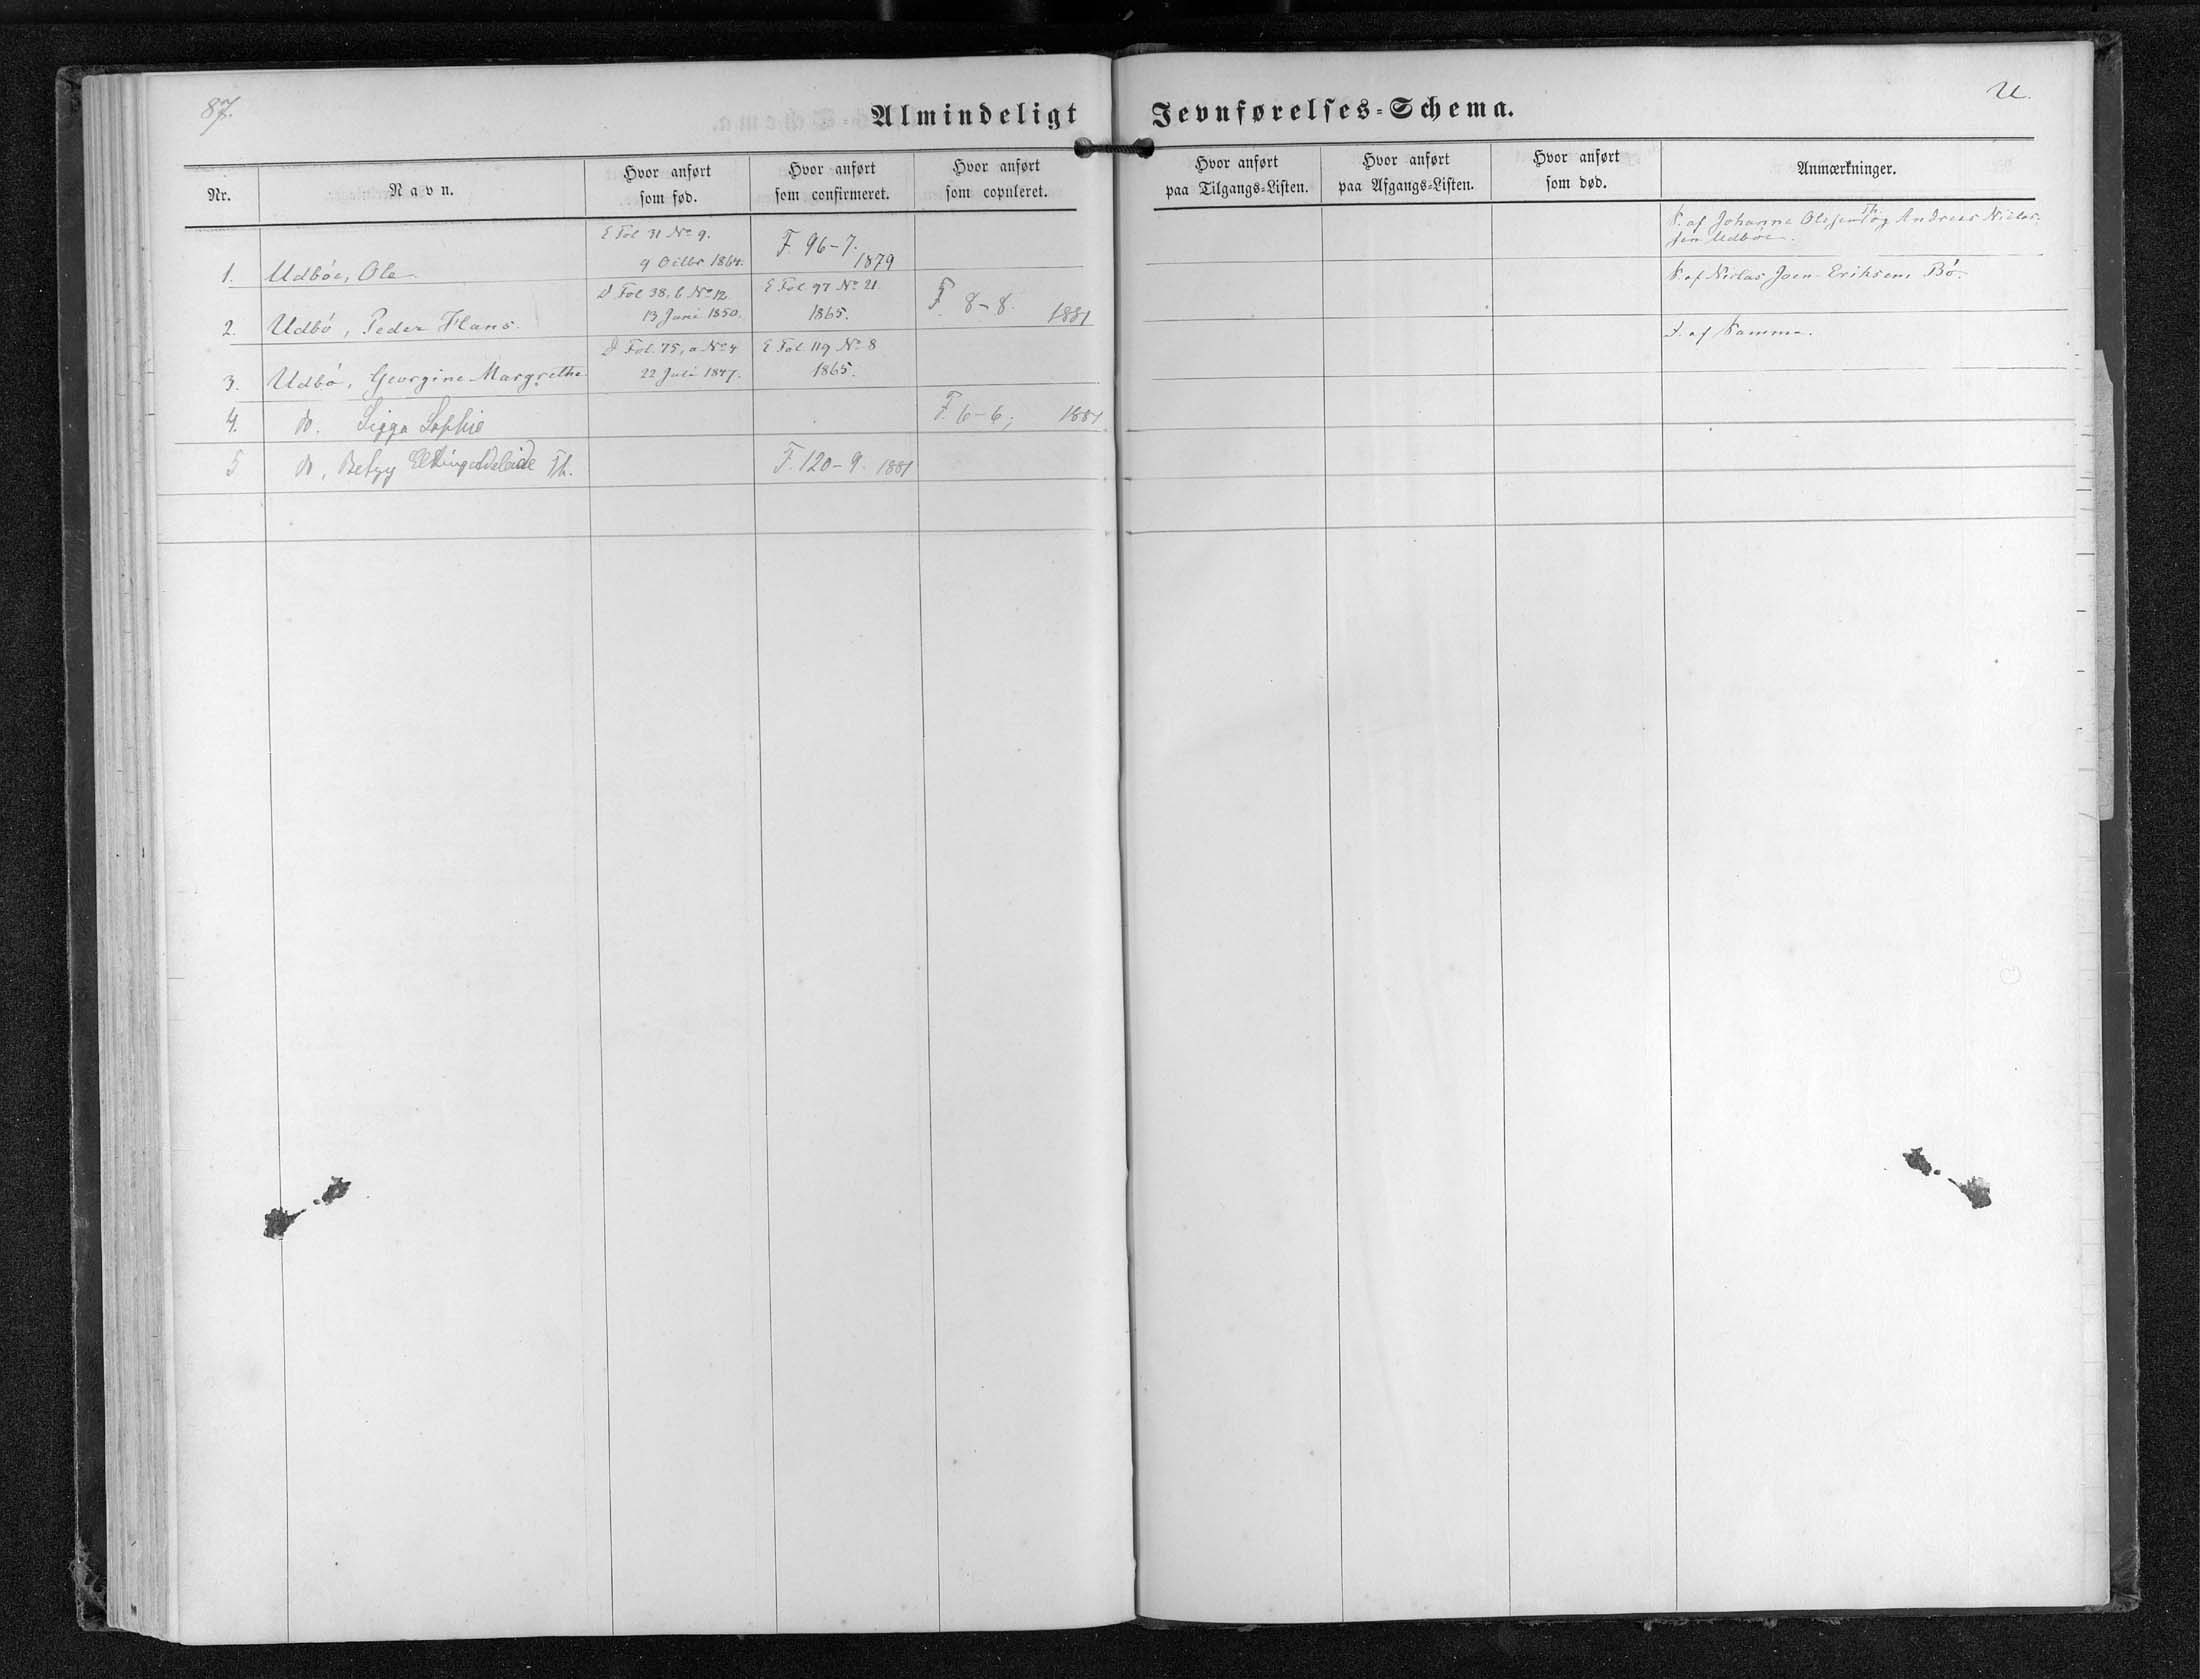 87.
U.
Almindeligt Jevnførelses-Schema.
Nr.
Navn.
Hvor anført som fød.
Hvor anført som confirmeret.
Hvor anført som copuleret.
Hvor anført paa Tilgangs-Listen.
Hvor anført paa Afgangs-Listen.
Hvor anført som død.
Anmærkninger.
1. Udbøe, Ole.
E Fol 31 No 9.
9 Octbr 1864.
F. 96-7.
1879
S. af Johanne Olesen Th. og Andreas Niclas-
sen Udbøe.
2. Udbø, Peder Hans.
D Fol 38, b No 12
13 Juni 1850.
E Fol 97 No 21
1865.
F. 8-8. 1881
S. af Niclas Joen Eriksen Bø.
3. Udbø, Georgine Margrethe
D Fol. 75, a No 4
22 Juli 1847.
E Fol 119 No 8
1865.
D. af Samme.
4. do. Sigga Sophie
F. 6-6; 1881
5 do, Betzy Adelaide Th.
F. 120-9. 1881